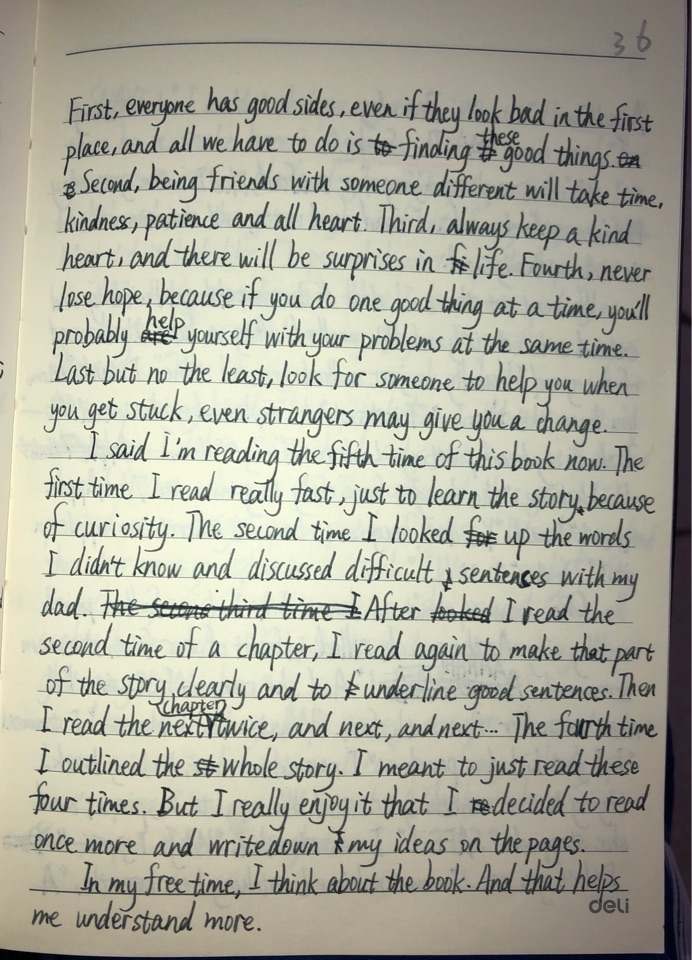 36
First, everyone has good sides, even if they look bad in the first
place, and all we have to do is finding these good things.
Second, being friends with someone different will take time,
kindness, patience and all heart. Third, always keep a kind
heart, and there will be surprises in life. Fourth, never
lose hope, because if you do one good thing at a time, you'll
probably help yourself with your problems at the same time.
Last but no the least, look for someone to help you when
you get stuck, even strangers may give you a change.
I said I'm reading the fifth time of this book now. The
first time I read really fast, just to learn the story, because
of curiosity. The second time I looked up the words
I didn't know and discussed difficult sentences with my
dad. After I read the
second time of a chapter, I read again to make that part
of the story clearly and to underline good sentences. Then
I read the next chapter twice, and next, and next... The fourth time
I outlined the whole story. I meant to just read these
four times. But I really enjoy it that I decided to read
once more and write down my ideas on the pages.
In my free time, I think about the book. And that helps
me understand more.
deli